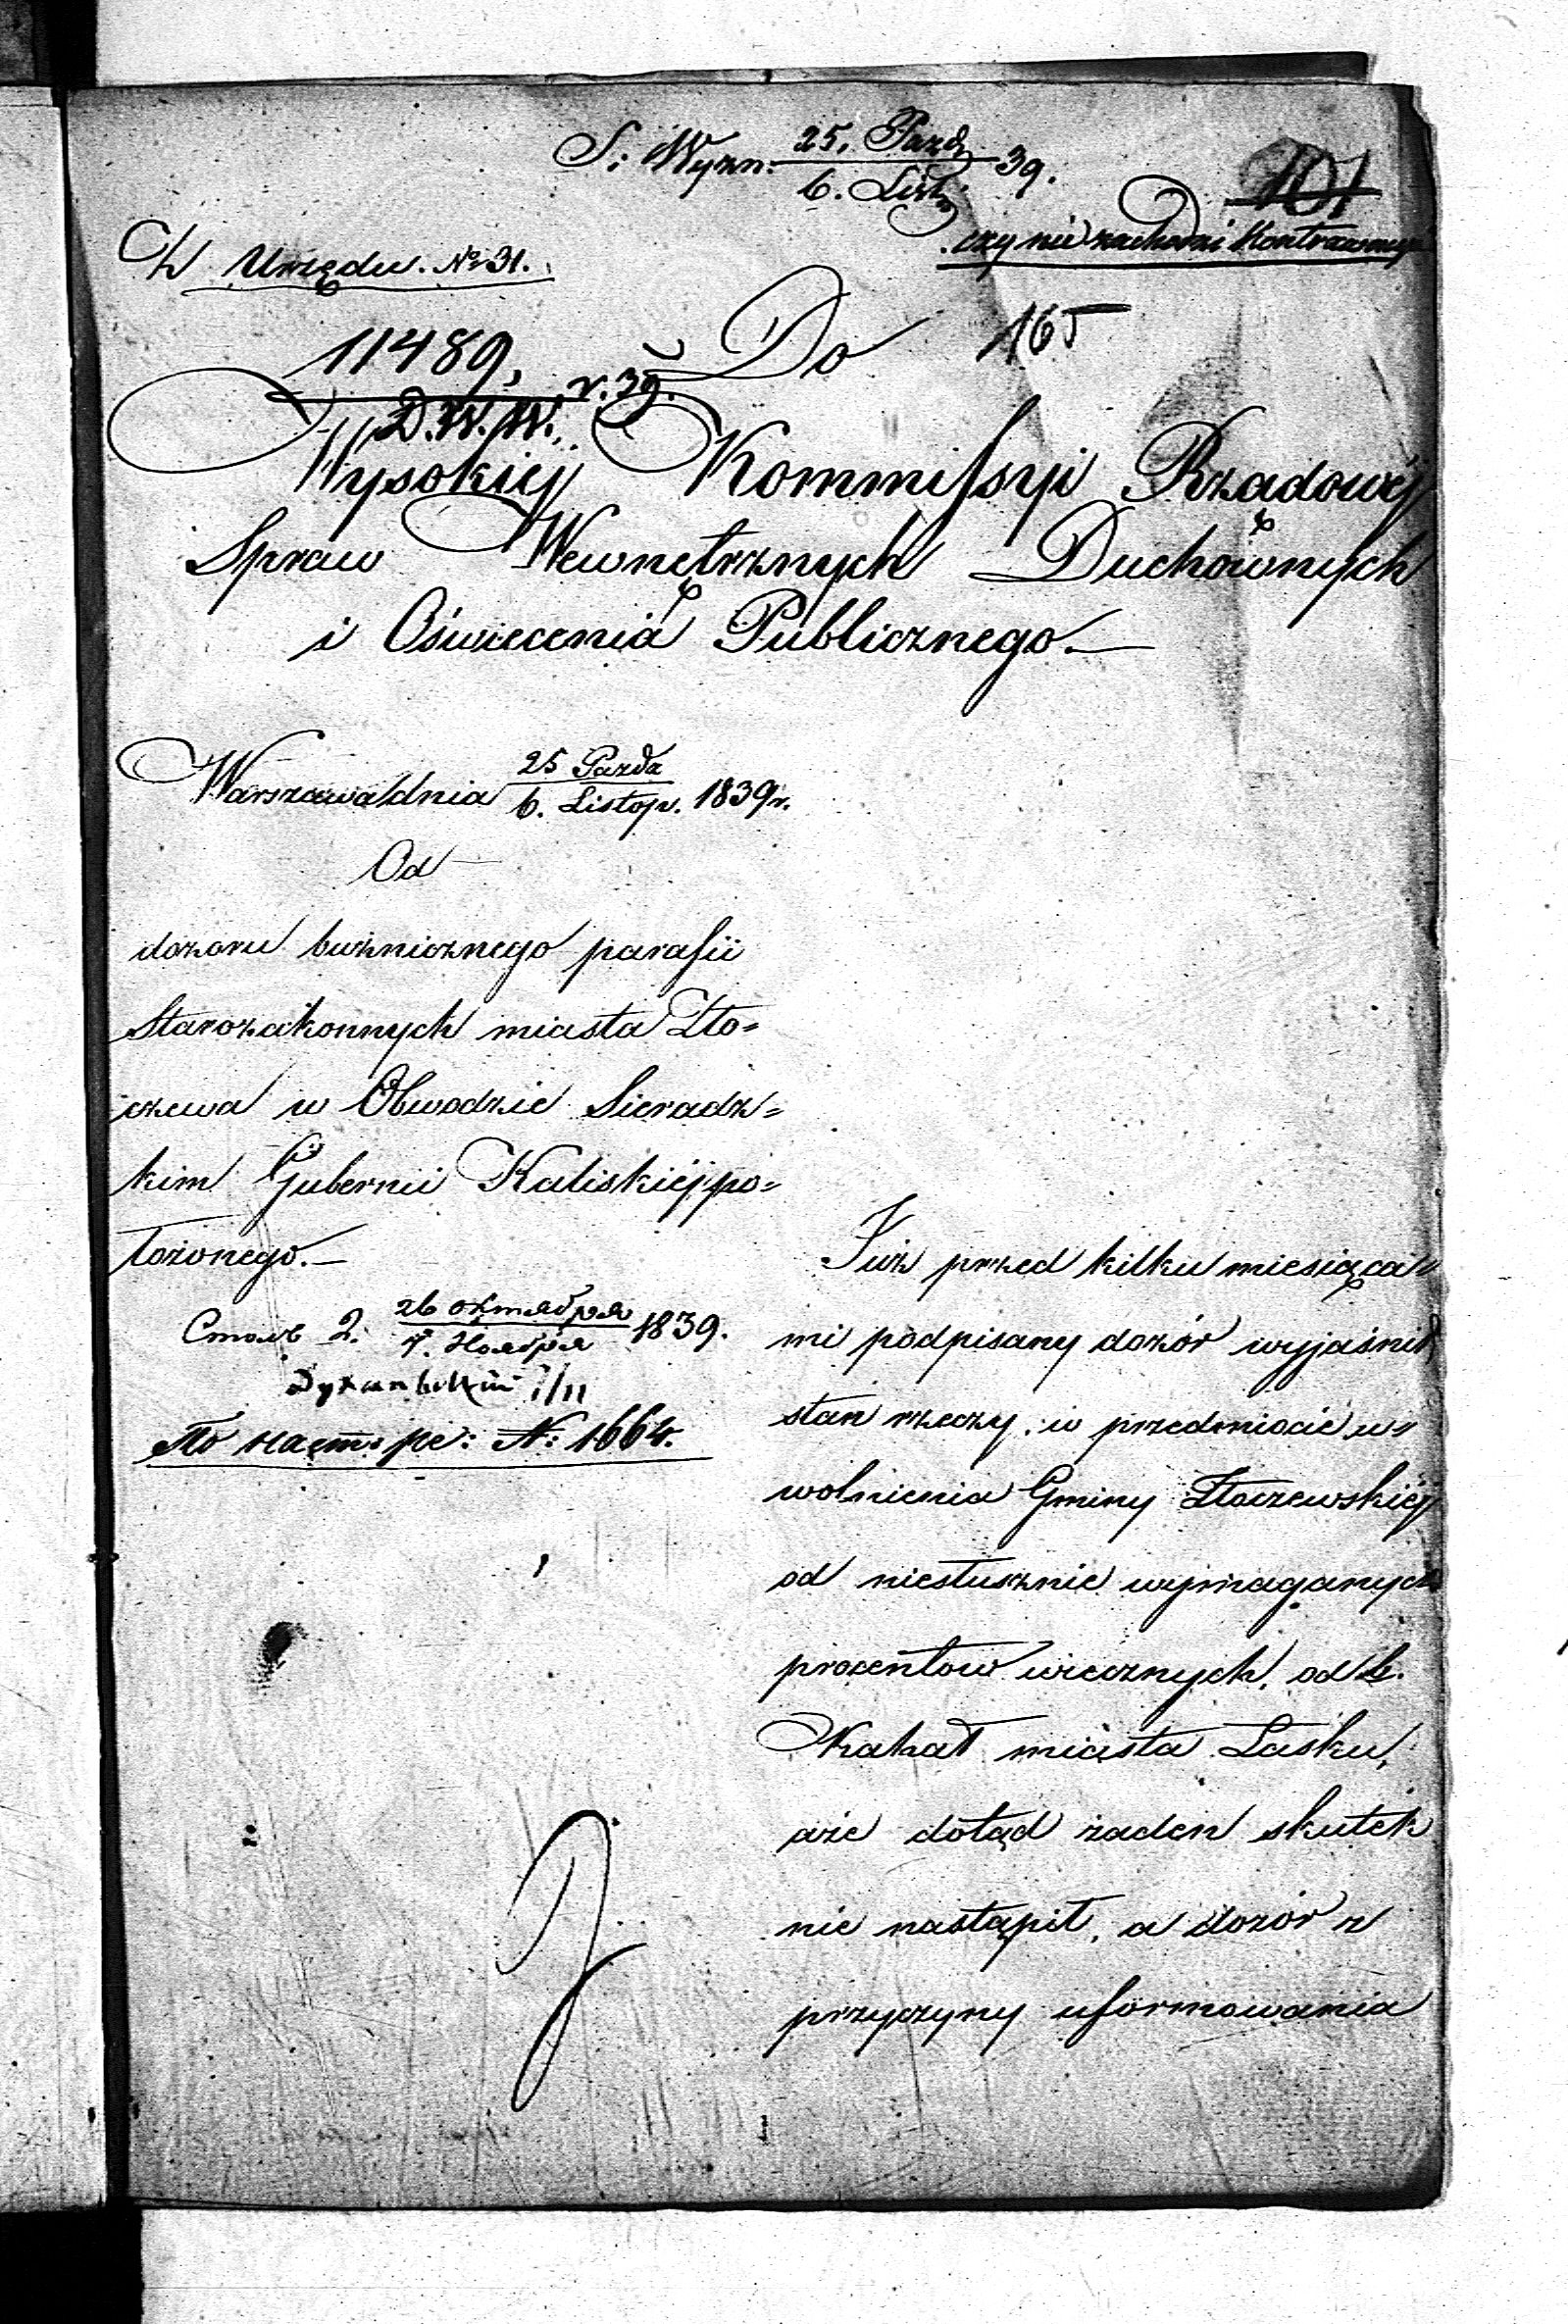 S: Wyzn. 25. Pazd. / 6. List. 39.
101
czy nie zachodzi
Z Urzędu. No 31.
Do
165
11489, r. 39.
D.W.W.
Wysokiej Kommissyi Rządowéj
Spraw Wewnętrznych Duchownych
i Oświecenia Publicznego.—
Warszawa dnia 25 Pazdz / 6. Listop. 1839 r.
Od
dozoru bużnicznego parafii
Starozakonnych miasta Zło=
czewa w Obwodzie Sieradz=
kim Gubernii Kaliskiéj po=
łożonego.—
Столъ 2. 26 октября / 7. Ноября 1839.
7/11
По наст: ре: N: 1664.
Już przed kilku miesiąca=
mi podpisany dozór wyjaśnił
stan rzeczy, w przedmiocie u=
wolnienia Gminy Złoczewskiéj
od niesłusznie wymaganych
procentow wiecznych, od b.
Kahał miasta Łasku,
aże dotąd żaden skutek
nie nastąpił, a dozór z
przyczyny uformowania